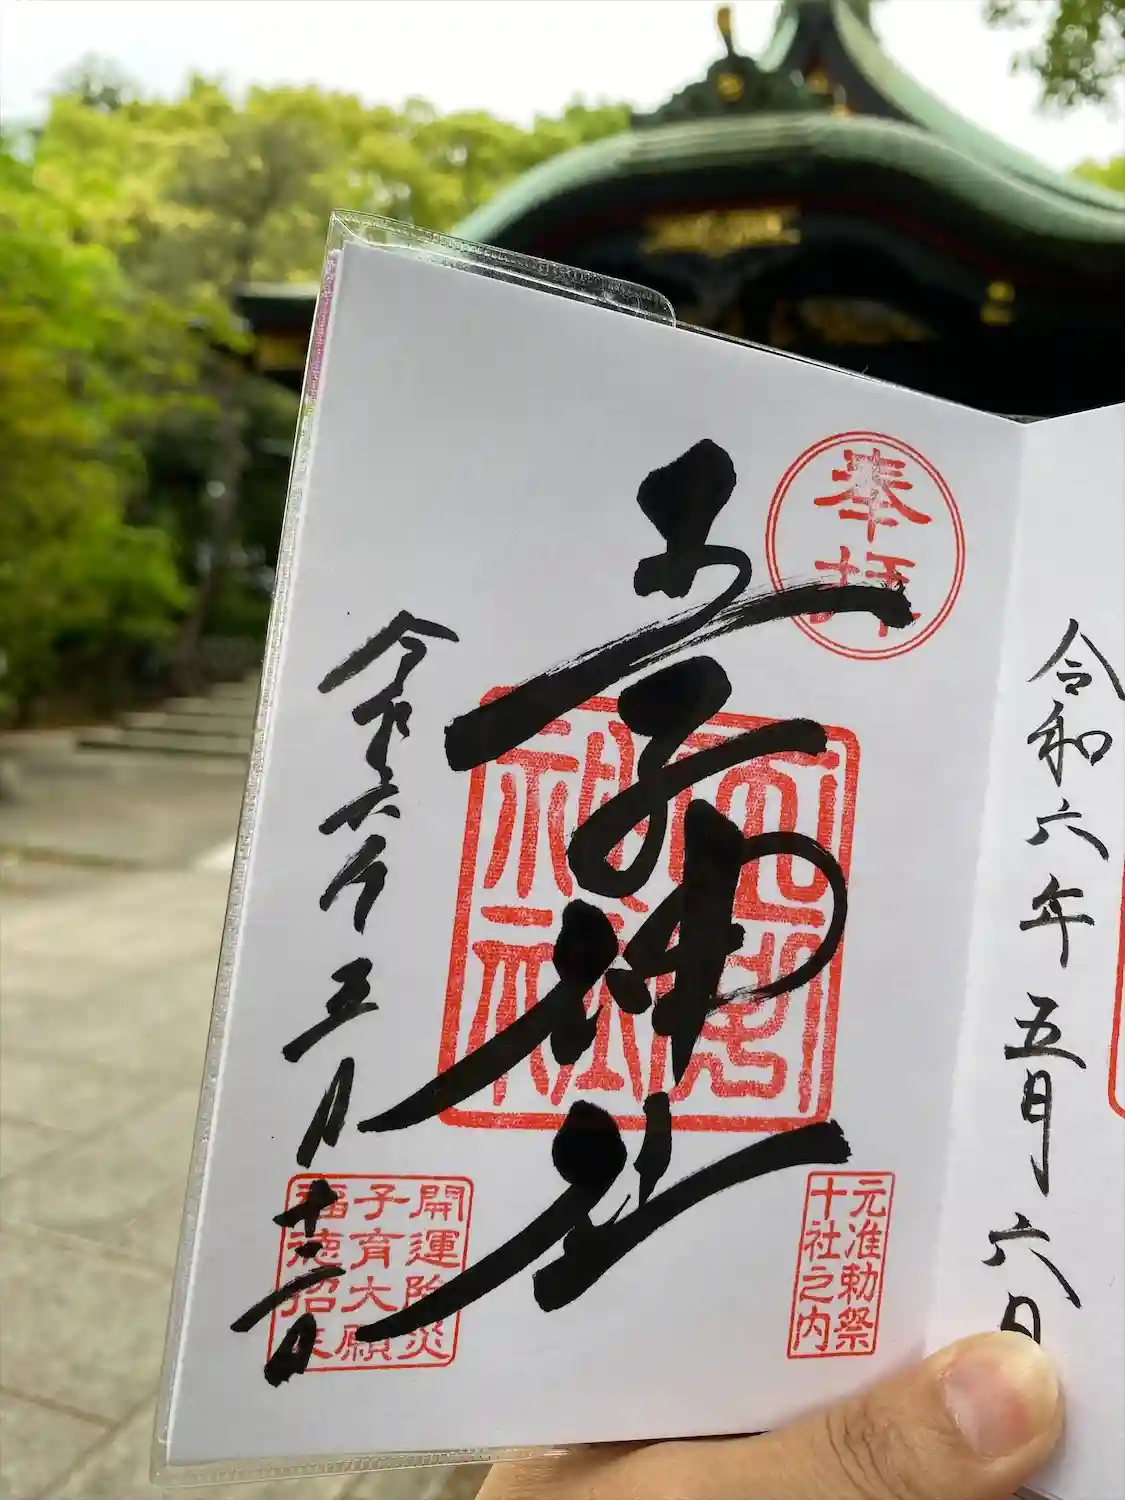 令和六年五月六日
奉拝
元准勅祭
十社之内
王子神社
令和六年五月十二日
開運除災
子育大願
福徳招来